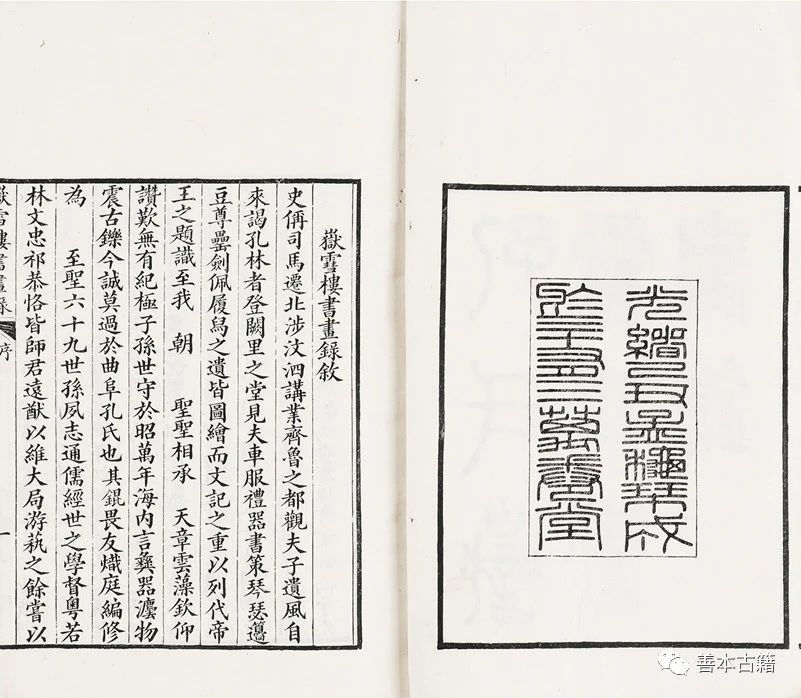 光緒己丑孟穐栞成
於三十有三萬卷堂
嶽雪樓書畫錄敘
史偁司馬遷北涉汶泗講業齊魯之都觀夫子遺風自
來謁孔林者登闕里之堂見夫車服禮器書策琴瑟籩
豆尊罍劍佩履舄之遺皆圖繪而文記之重以列代帝
王之題識至我　朝　聖聖相承　天章雲藻欽仰
讚歎無有紀極子孫世守於昭萬年海內言彝器灋物
震古鑠今誠莫過於曲阜孔氏也其錕畏友熾庭編修
為　至聖六十九世孫夙志通儒經世之學督粵若
林文忠祁恭恪皆師君遠猷以維大局游蓺之餘嘗以
嶽雪樓書畫錄　序　一
善本古籍